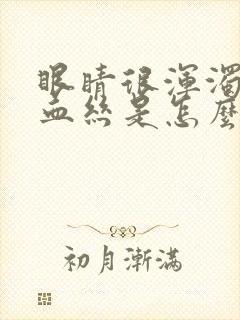 眼睛很渾濁
血絲是怎麼
初月漸滿